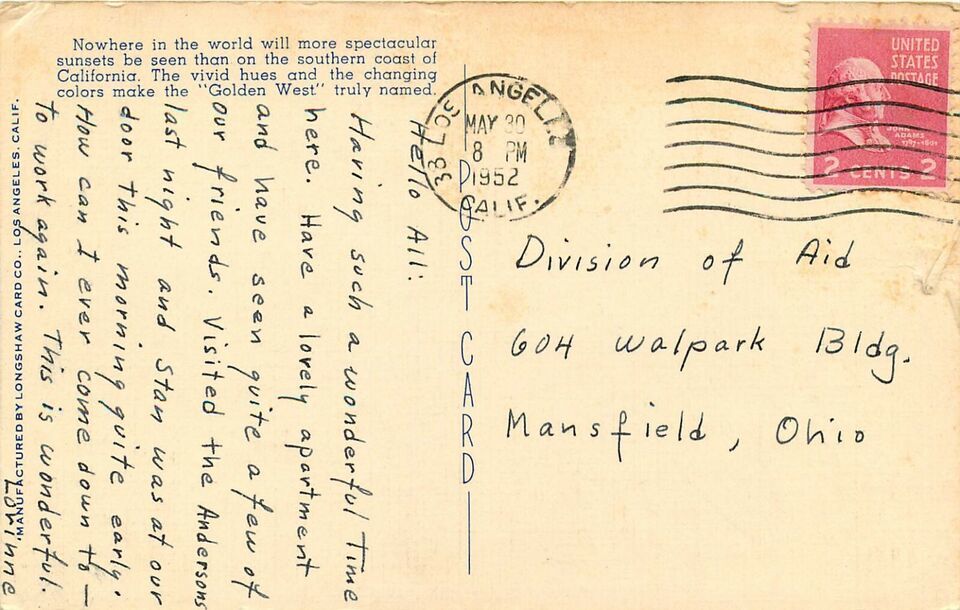 Nowhere in the world will more spectacular
sunsets be seen than on the southern coast of
California. The vivid hues and the changing
colors make the "Golden West" truly named.
Hello All:
Having such a wonderful time
here. Have a lovely apartment
and have seen quite a few of
our friends. Visited the Andersons
last night and Stan was at our
door this morning quite early.
How can I ever come down to —
to work again. This is wonderful.
Lorinne
MANUFACTURED BY LONGSHAW CARD CO., LOS ANGELES, CALIF.
POST CARD
33 LOS ANGELES
MAY 30
8 PM
1952
CALIF.
UNITED
STATES
POSTAGE
JOHN
ADAMS
1797-1801
2 CENTS 2
Division of Aid
604 Walpark Bldg.
Mansfield, Ohio